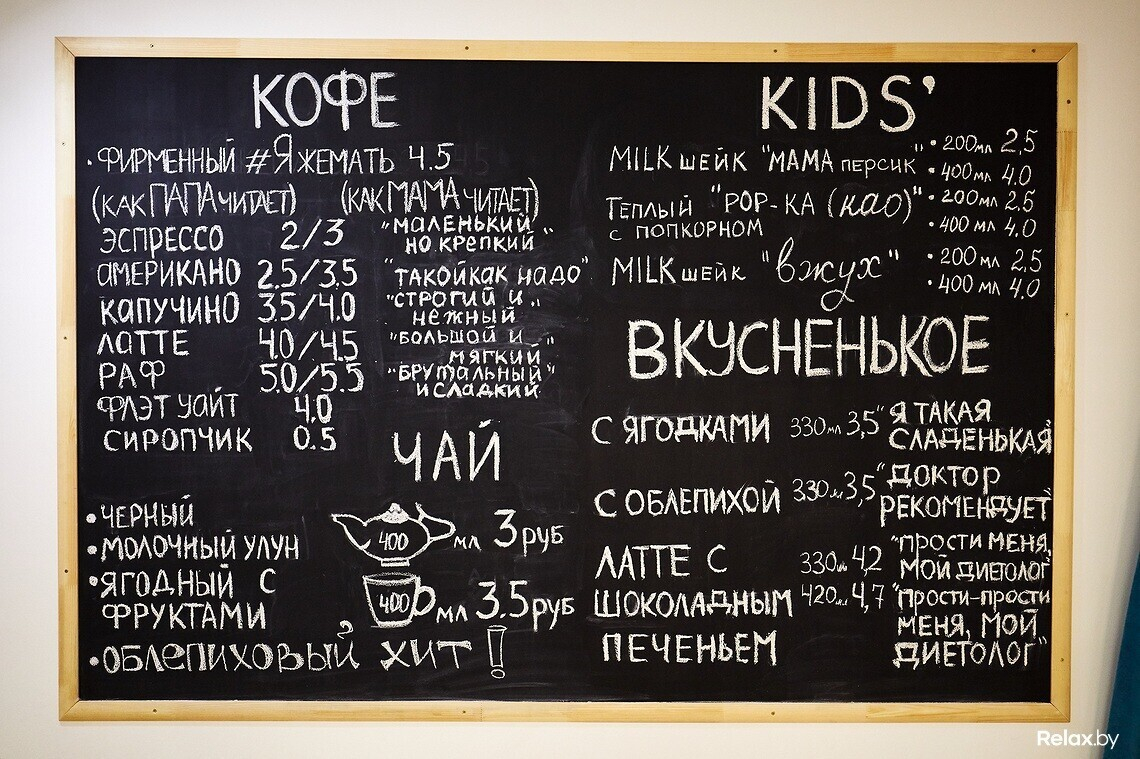 КОФЕ
• ФИРМЕННЫЙ #ЯЖЕМАТЬ 4.5
(КАК ПАПА ЧИТАЕТ) (КАК МАМА ЧИТАЕТ)
ЭСПРЕССО 2/3 "МАЛЕНЬКИЙ
НО КРЕПКИЙ"
АМЕРИКАНО 2.5/3.5 "ТАКОЙ КАК НАДО"
КАПУЧИНО 3.5/4.0 "СТРОГИЙ И
НЕЖНЫЙ"
ЛАТТЕ 4.0/4.5 "БОЛЬШОЙ И
МЯГКИЙ"
РАФ 5.0/5.5 "БРУТАЛЬНЫЙ
И СЛАДКИЙ"
ФЛЭТ УАЙТ 4.0
СИРОПЧИК 0.5
ЧАЙ
• ЧЕРНЫЙ
• МОЛОЧНЫЙ УЛУН
400 мл 3 руб
• ЯГОДНЫЙ С
ФРУКТАМИ
400 мл 3.5 руб
• ОБЛЕПИХОВЫЙ ХИТ!
KIDS'
MILK ШЕЙК "МАМА ПЕРСИК" • 200 мл 2,5
• 400 мл 4.0
ТЕПЛЫЙ "POP-КА (као)" • 200 мл 2.5
С ПОПКОРНОМ • 400 мл 4,0
MILK ШЕЙК "вжух" • 200 мл 2,5
• 400 мл 4.0
ВКУСНЕНЬКОЕ
С ЯГОДКАМИ 330 мл 3,5 "Я ТАКАЯ
СЛАДЕНЬКАЯ"
С ОБЛЕПИХОЙ 330 мл 3,5 "ДОКТОР
РЕКОМЕНДУЕТ"
ЛАТТЕ С 330 мл 4,2 "ПРОСТИ МЕНЯ,
МОЙ ДИЕТОЛОГ"
ШОКОЛАДНЫМ 420 мл 4,7 "ПРОСТИ-ПРОСТИ
МЕНЯ, МОЙ
ПЕЧЕНЬЕМ ДИЕТОЛОГ"
Relax.by